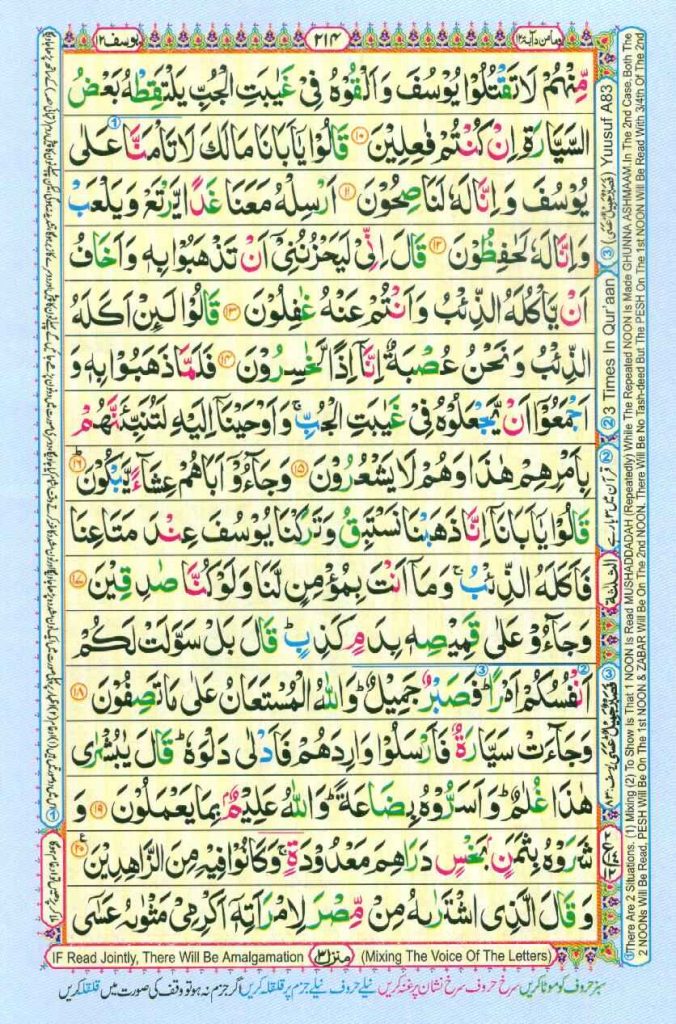 وما من دآبۃ ۱۲
۲۱۴
یوسف ۱۲
مِّنْهُمْ لَا تَقْتُلُوْا يُوْسُفَ وَاَلْقُوْهُ فِیْ غَيٰبَتِ الْجُبِّ يَلْتَقِطْهُ بَعْضُ
السَّيَّارَةِ اِنْ كُنْتُمْ فٰعِلِيْنَ ۝۱۰ قَالُوْا يٰۤاَبَانَا مَا لَكَ لَا تَاْمَنَّا عَلٰى
يُوْسُفَ وَاِنَّا لَهٗ لَنٰصِحُوْنَ ۝۱۱ اَرْسِلْهُ مَعَنَا غَدًا يَّرْتَعْ وَيَلْعَبْ
وَاِنَّا لَهٗ لَحٰفِظُوْنَ ۝۱۲ قَالَ اِنِّیْ لَيَحْزُنُنِیْۤ اَنْ تَذْهَبُوْا بِهٖ وَاَخَافُ
اَنْ يَّاْكُلَهُ الذِّئْبُ وَاَنْتُمْ عَنْهُ غٰفِلُوْنَ ۝۱۳ قَالُوْا لَئِنْ اَكَلَهُ
الذِّئْبُ وَنَحْنُ عُصْبَةٌ اِنَّاۤ اِذًا لَّخٰسِرُوْنَ ۝۱۴ فَلَمَّا ذَهَبُوْا بِهٖ وَ
اَجْمَعُوْۤا اَنْ يَّجْعَلُوْهُ فِیْ غَيٰبَتِ الْجُبِّ ۚ وَاَوْحَيْنَاۤ اِلَيْهِ لَتُنَبِّئَنَّهُمْ
بِاَمْرِهِمْ هٰذَا وَهُمْ لَا يَشْعُرُوْنَ ۝۱۵ وَجَآءُوْۤ اَبَاهُمْ عِشَآءً يَّبْكُوْنَ ۝۱۶
قَالُوْا يٰۤاَبَانَاۤ اِنَّا ذَهَبْنَا نَسْتَبِقُ وَتَرَكْنَا يُوْسُفَ عِنْدَ مَتَاعِنَا
فَاَكَلَهُ الذِّئْبُ ۚ وَمَاۤ اَنْتَ بِمُؤْمِنٍ لَّنَا وَلَوْ كُنَّا صٰدِقِيْنَ ۝۱۷
وَجَآءُوْ عَلٰى قَمِيْصِهٖ بِدَمٍ كَذِبٍ ؕ قَالَ بَلْ سَوَّلَتْ لَكُمْ
اَنْفُسُكُمْ اَمْرًا ؕ فَصَبْرٌ جَمِيْلٌ ؕ وَاللّٰهُ الْمُسْتَعَانُ عَلٰى مَا تَصِفُوْنَ ۝۱۸
وَجَآءَتْ سَيَّارَةٌ فَاَرْسَلُوْا وَارِدَهُمْ فَاَدْلٰى دَلْوَهٗ ؕ قَالَ يٰبُشْرٰى
هٰذَا غُلٰمٌ ؕ وَاَسَرُّوْهُ بِضَاعَةً ؕ وَاللّٰهُ عَلِيْمٌۢ بِمَا يَعْمَلُوْنَ ۝۱۹ وَ
شَرَوْهُ بِثَمَنٍۢ بَخْسٍ دَرَاهِمَ مَعْدُوْدَةٍ ۚ وَكَانُوْا فِيْهِ مِنَ الزّٰهِدِيْنَ ۝۲۰
وَقَالَ الَّذِی اشْتَرٰىهُ مِنْ مِّصْرَ لِامْرَاَتِهٖۤ اَكْرِمِیْ مَثْوٰىهُ عَسٰۤى
IF Read Jointly, There Will Be Amalgamation
منزل ۳
(Mixing The Voice Of The Letters)
سبز حروف کو موٹا کریں سرخ حروف سرخ نشان پر غنہ کریں نیلے حروف نیلے جزم پر قلقلہ کریں اگر جزم نہ ہو تو وقف کی صورت میں قلقلہ کریں
② 3 Times In Qur'aan ③ Yuusuf A83
①There Are 2 Situations. (1) Mixing (2) To Show Is That 1 NOON Is Read MUSHADDADAH (Repeatedly) While The Repeated NOON Is Made GHUNNA ASHMAAM.In The 2nd Case.Both The
2 NOONs Will Be Read, PESH Will Be On The 1st NOON & ZABAR Will Be On The 2nd NOON, There Will Be No Tash-deed But The PESH On The 1st NOON Will Be Read With 3/4th Of The 2nd